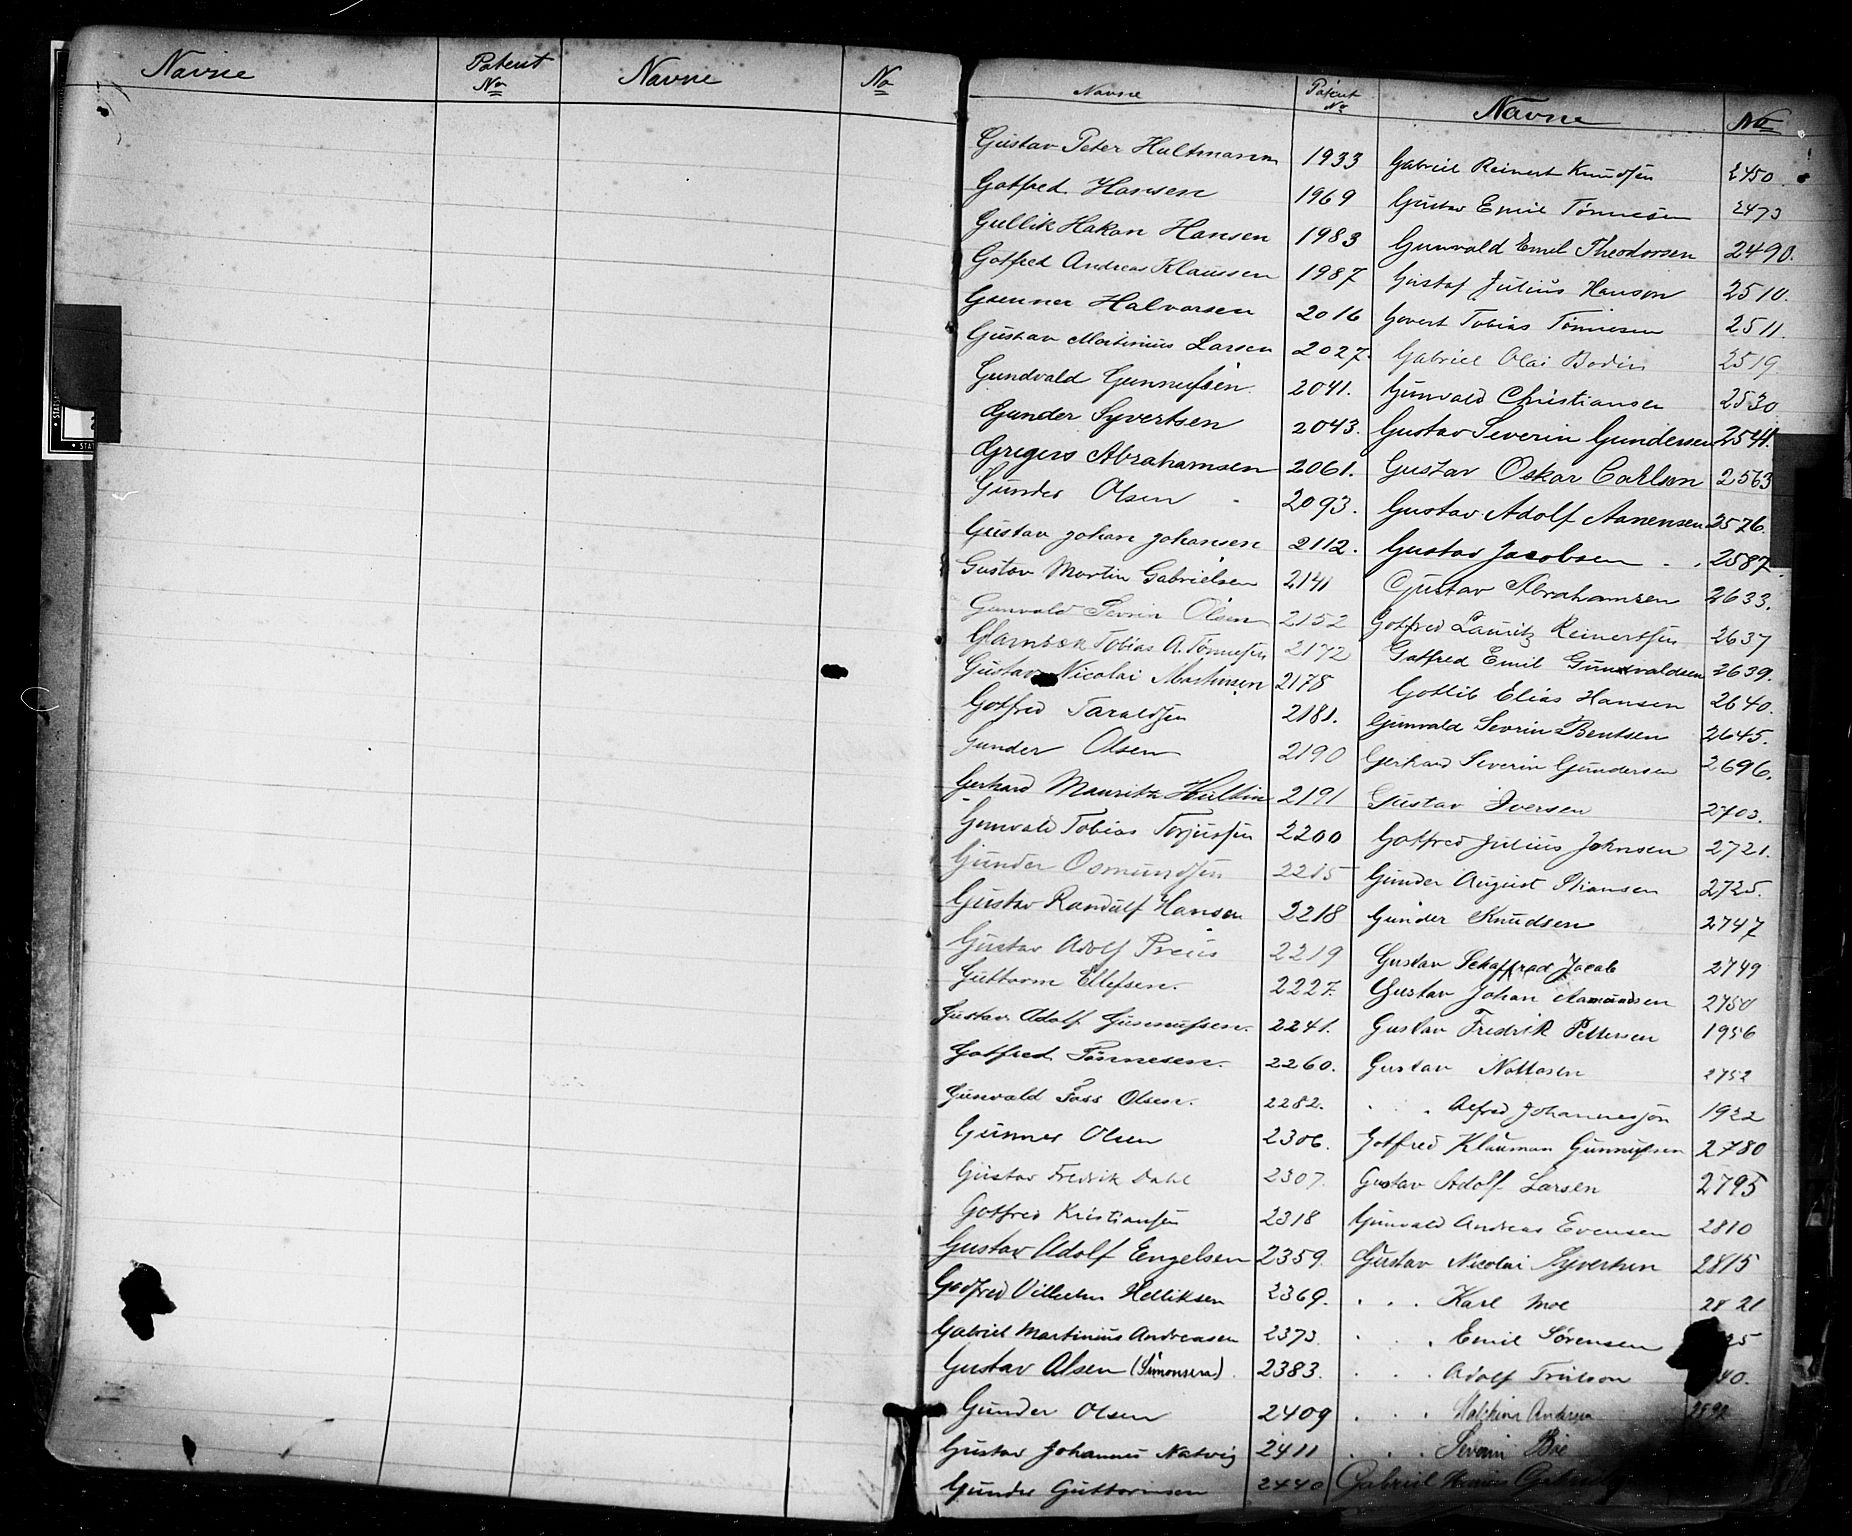 Navne Patent No Navne No
Navne Patent No Navne No
Gustav Peter Hultmann 1933
Gotfred Hansen 1969
Gullik Hakon Hansen 1983
Gotfred Andreas Klaussen 1987
Gunner Halvorsen 2016
Gustav Martinius Larsen 2027.
Gundvald Gunnufsen 2041.
Gunder Syvertsen 2043.
Gregers Abrahamsen 2061.
Gunder Olsen 2093.
Gustav Johan Johansen 2112.
Gustav Martin Gabrielsen 2141
Gunvald Sevrin Olsen 2152
Tobias A. Tønnesen 2172
Gustav Nicolai Mathisen 2178
Gotfred Taraldsen 2181.
Gunder Olsen 2190
Gerhard Mauritz Hultin 2191
Gunvald Tobias Torjussen 2200
Gunder Osmundsen 2215
Gustav Randulf Hansen 2218
Gustav Adolf Preus 2219
Guttorm Ellefsen. 2227.
Gustav Adolf Gunnufsen. 2241.
Gotfred Tønnesen. 2260.
Gunvald Foss Olsen. 2282.
Gunner Olsen 2306.
Gustav Fredrik Dahl 2307.
Gotfred Kristiansen 2318
Gustav Adolf Engelsen 2359.
Godfred Vilhelm Helliksen 2369.
Gabriel Martinius Andreasen 2373
Gustav Olsen (Simonsen). 2383.
Gunder Olsen 2409
Gustav Johannes Natvig 2411
Gunder Guttormsen 2440
Gabriel Reinert Knudsen 2450
Gustav Emil Tønnesen 2473
Gunvald Emil Theodorsen 2490.
Gustaf Julius Hanson 2510.
Govert Tobias Tønnesen 2511.
Gabriel Olai Bodin 2519
Gunvald Christiansen 2530
Gustav Severin Gundersen 2541.
Gustav Oskar Carlson 2563
Gustav Adolf Aanensen 2576.
Gustav Jacobsen 2587.
Gustav Abrahamsen 2633.
Gotfred Lauritz Reinertsen 2637
Gotfred Emil Gundvaldsen 2639.
Gotlib Elias Hansen 2640.
Gunvald Sevrin Bentsen 2645.
Gerhard Severin Gundersen 2696.
Gustav Iversen 2703.
Gotfred Julius Johnsen 2721.
Gunder August Stiansen 2725.
Gunder Knudsen 2747
Gustav Schaffrad Jacob 2749
Gustav Johan Aamundsen 2750
Gustav Fredrik Pettersen 1956
Gustav Nottosen 2752
. . Alfred Johannesson 1922
Gotfred Klauman Gunnufsen 2780
Gustav Adolf Larsen 2795
Gunvald Andreas Evensen 2810
Gustav Nicolai Syvertsen 2815
. . . Karl Moe 2821
. . . Emil Sørensen 25
. . . Adolf Trulson 40.
. . .
. . . Severin Boe
Gabriel